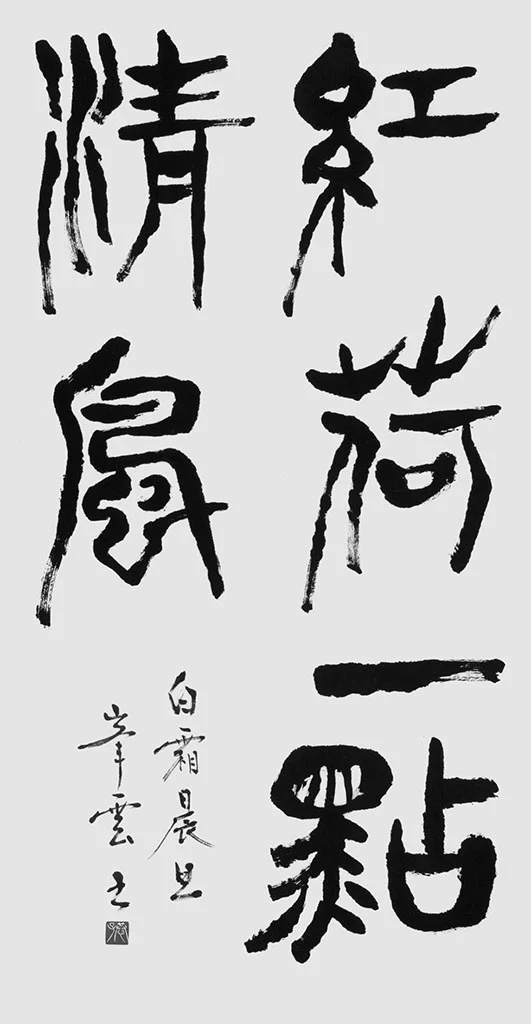 紅荷一點
清風
白霜晨旦
峯雲